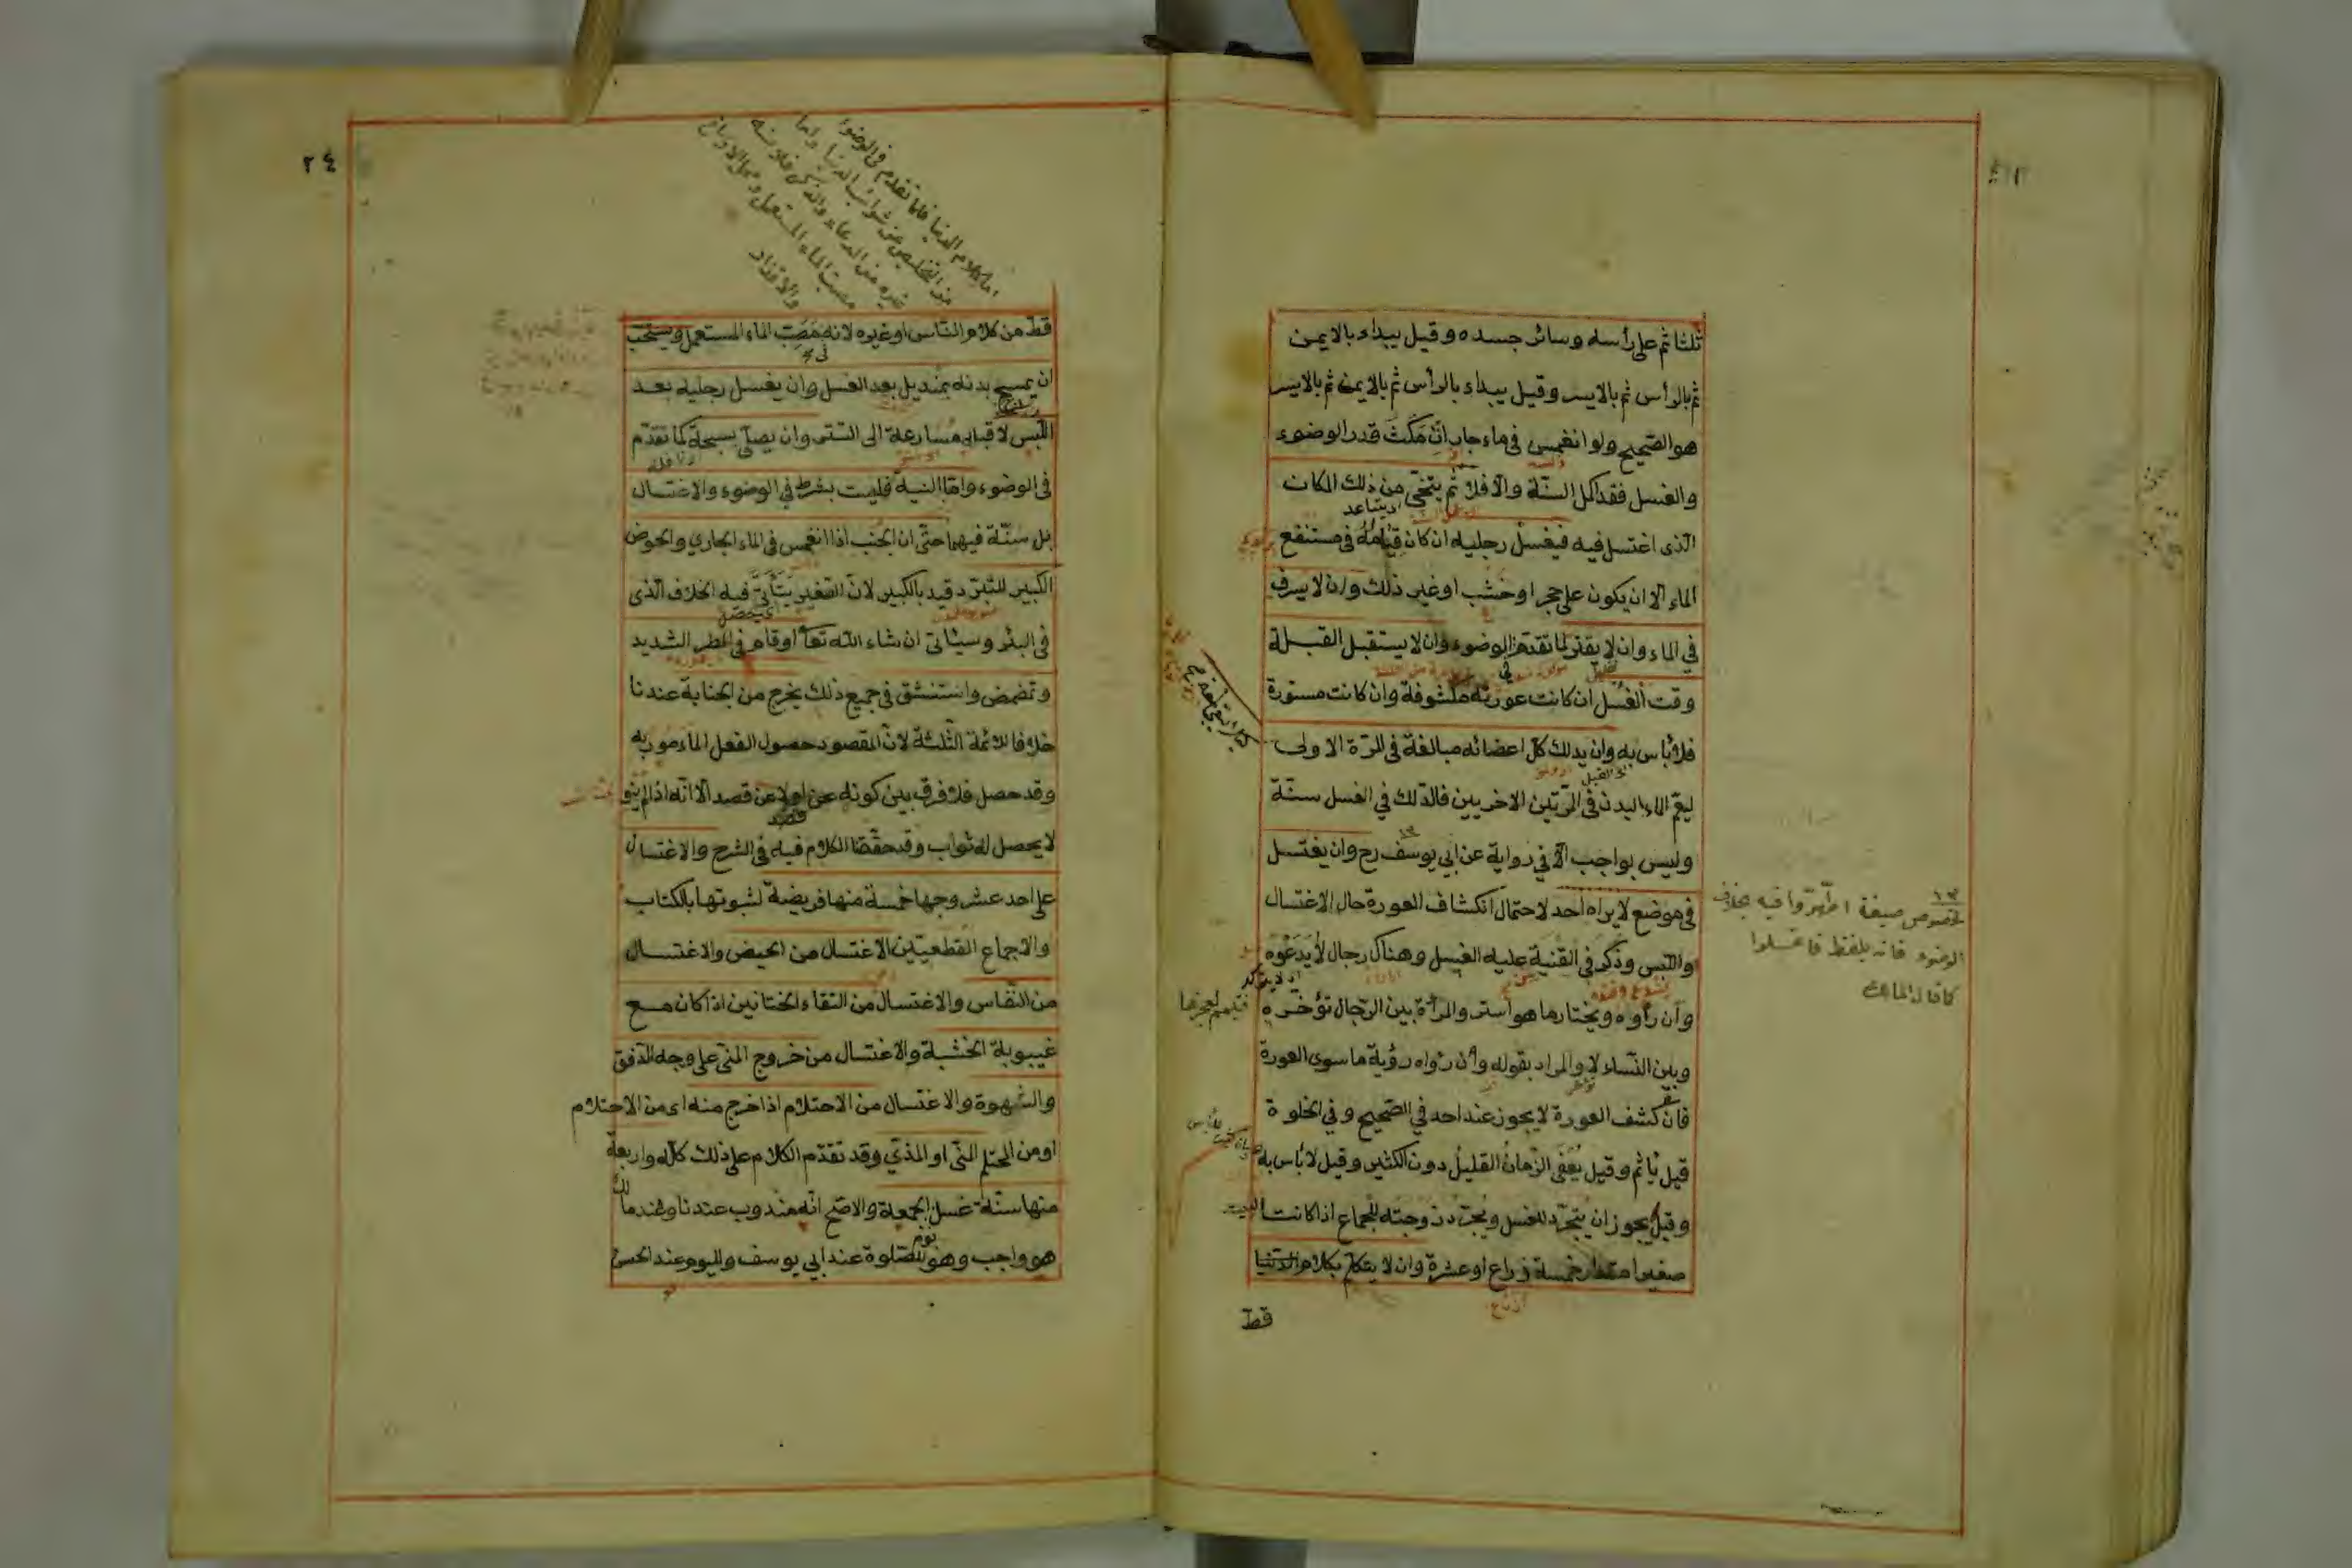 ثلثا ثم على رأسه وسائر جسده وقيل يبداء بالايمن
ثم بالرأس ثم بالايسر وقيل يبداء بالرأس ثم بالايمن ثم بالايسر
هو الصحيح ولو انغمس فى ماء جار ان مكث قدر الوضوء
والغسل فقد اكمل السنة والا فلا ثم يتنحى من ذلك المكان
الذى اغتسل فيه فيغسل رجليه ان كان قيامه فى مستنقع
الماء الا ان يكون على حجر او خشب او غير ذلك وان لا يسرف
في الماء وان لا يقتر لما تقدم في الوضوء وان لا يستقبل القبلة
وقت الغسل ان كانت عورته مكشوفة وان كانت مستورة
فلا بأس به وان يدلك كل اعضائه مبالغة فى المرة الاولى
ليعم الماء البدن فى المرتين الاخريين فالدلك في الغسل سنة
وليس بواجب الا في رواية عن ابي يوسف رح وان يغتسل
فى موضع لا يراه احد لاحتمال انكشاف العورة حال الاغتسال
واللبس وذكر فى القنية عليه الغسل وهناك رجال لا يدعوه
وان رأوه ويختار ما هو استر والمرأة بين الرجال تؤخره
وبين النساء لا والمراد بقوله وان رؤاه رؤية ما سوى العورة
فان كشف العورة لا يجوز عند احد في الصحيح وفي الخلوة
قيل يأثم وقيل يعفى الزمان القليل دون الكثير وقيل لا بأس به
وقيل يجوز ان يتجرد للغسل ويجرد زوجته للجماع اذا كانت البيت
صغيرا مقدار خمسة ذراع او عشرة وان لا يتكلم بكلام الدنيا
قط
١٣
لخصوص صيغة اطهروا فيه بخلاف
الوضوء فانه بلفظ فاغسلوا
كما قاله المالك
٢٤
اما كلام الدنيا فلما تقدم فى الوضوء
من التخليص عن شوائب الدنيا واما
غيره من الدعاء والذكر فلانه
مصب الماء المستعمل ومحل الاوساخ
والاقذار
قط من كلام الناس او غيره لانه مصب الماء المستعمل ويستحب
ان يمسح بدنه بمنديل بعد الغسل وان يغسل رجليه بعد
اللبس لا قبله مسارعة الى التستر وان يصلى بسبحة كما تقدم
فى الوضوء واما النية فليست بشرط في الوضوء والاغتسال
بل سنة فيهما حتى ان الجنب اذا انغمس فى الماء الجاري والحوض
الكبير للتبرد قيد بالكبير لان الصغير يتأتى فيه الخلاف الذى
فى البئر وسيأتى ان شاء الله تعا او قام فى المطر الشديد
وتمضمض واستنشق فى جميع ذلك يخرج من الجنابة عندنا
خلافا للائمة الثلثة لان المقصود حصول الفعل المأمور به
وقد حصل فلا فرق بين كونه عن قصد الا انه اذا لم ينو
لا يحصل له ثواب وقد حققنا الكلام فيه فى الشرح والاغتسال
على احد عشر وجها خمسة منها فريضة لثبوتها بالكتاب
والاجماع القطعيتين الاغتسال من الحيض والاغتسال
من النفاس والاغتسال من التقاء الختانين اذا كان مع
غيبوبة الحشبة والاغتسال من خروج المنى على وجه الدفق
والشهوة والاغتسال من الاحتلام اذا خرج منه اى من الاحتلام
او من المحتلم المنى او المذي وقد تقدم الكلام على ذلك كله واربعة
منها سنة غسل الجمعة والاصح انه مندوب عندنا وعند مالك
هو واجب وهو للصلوة عند ابي يوسف ولليوم عند الحسن